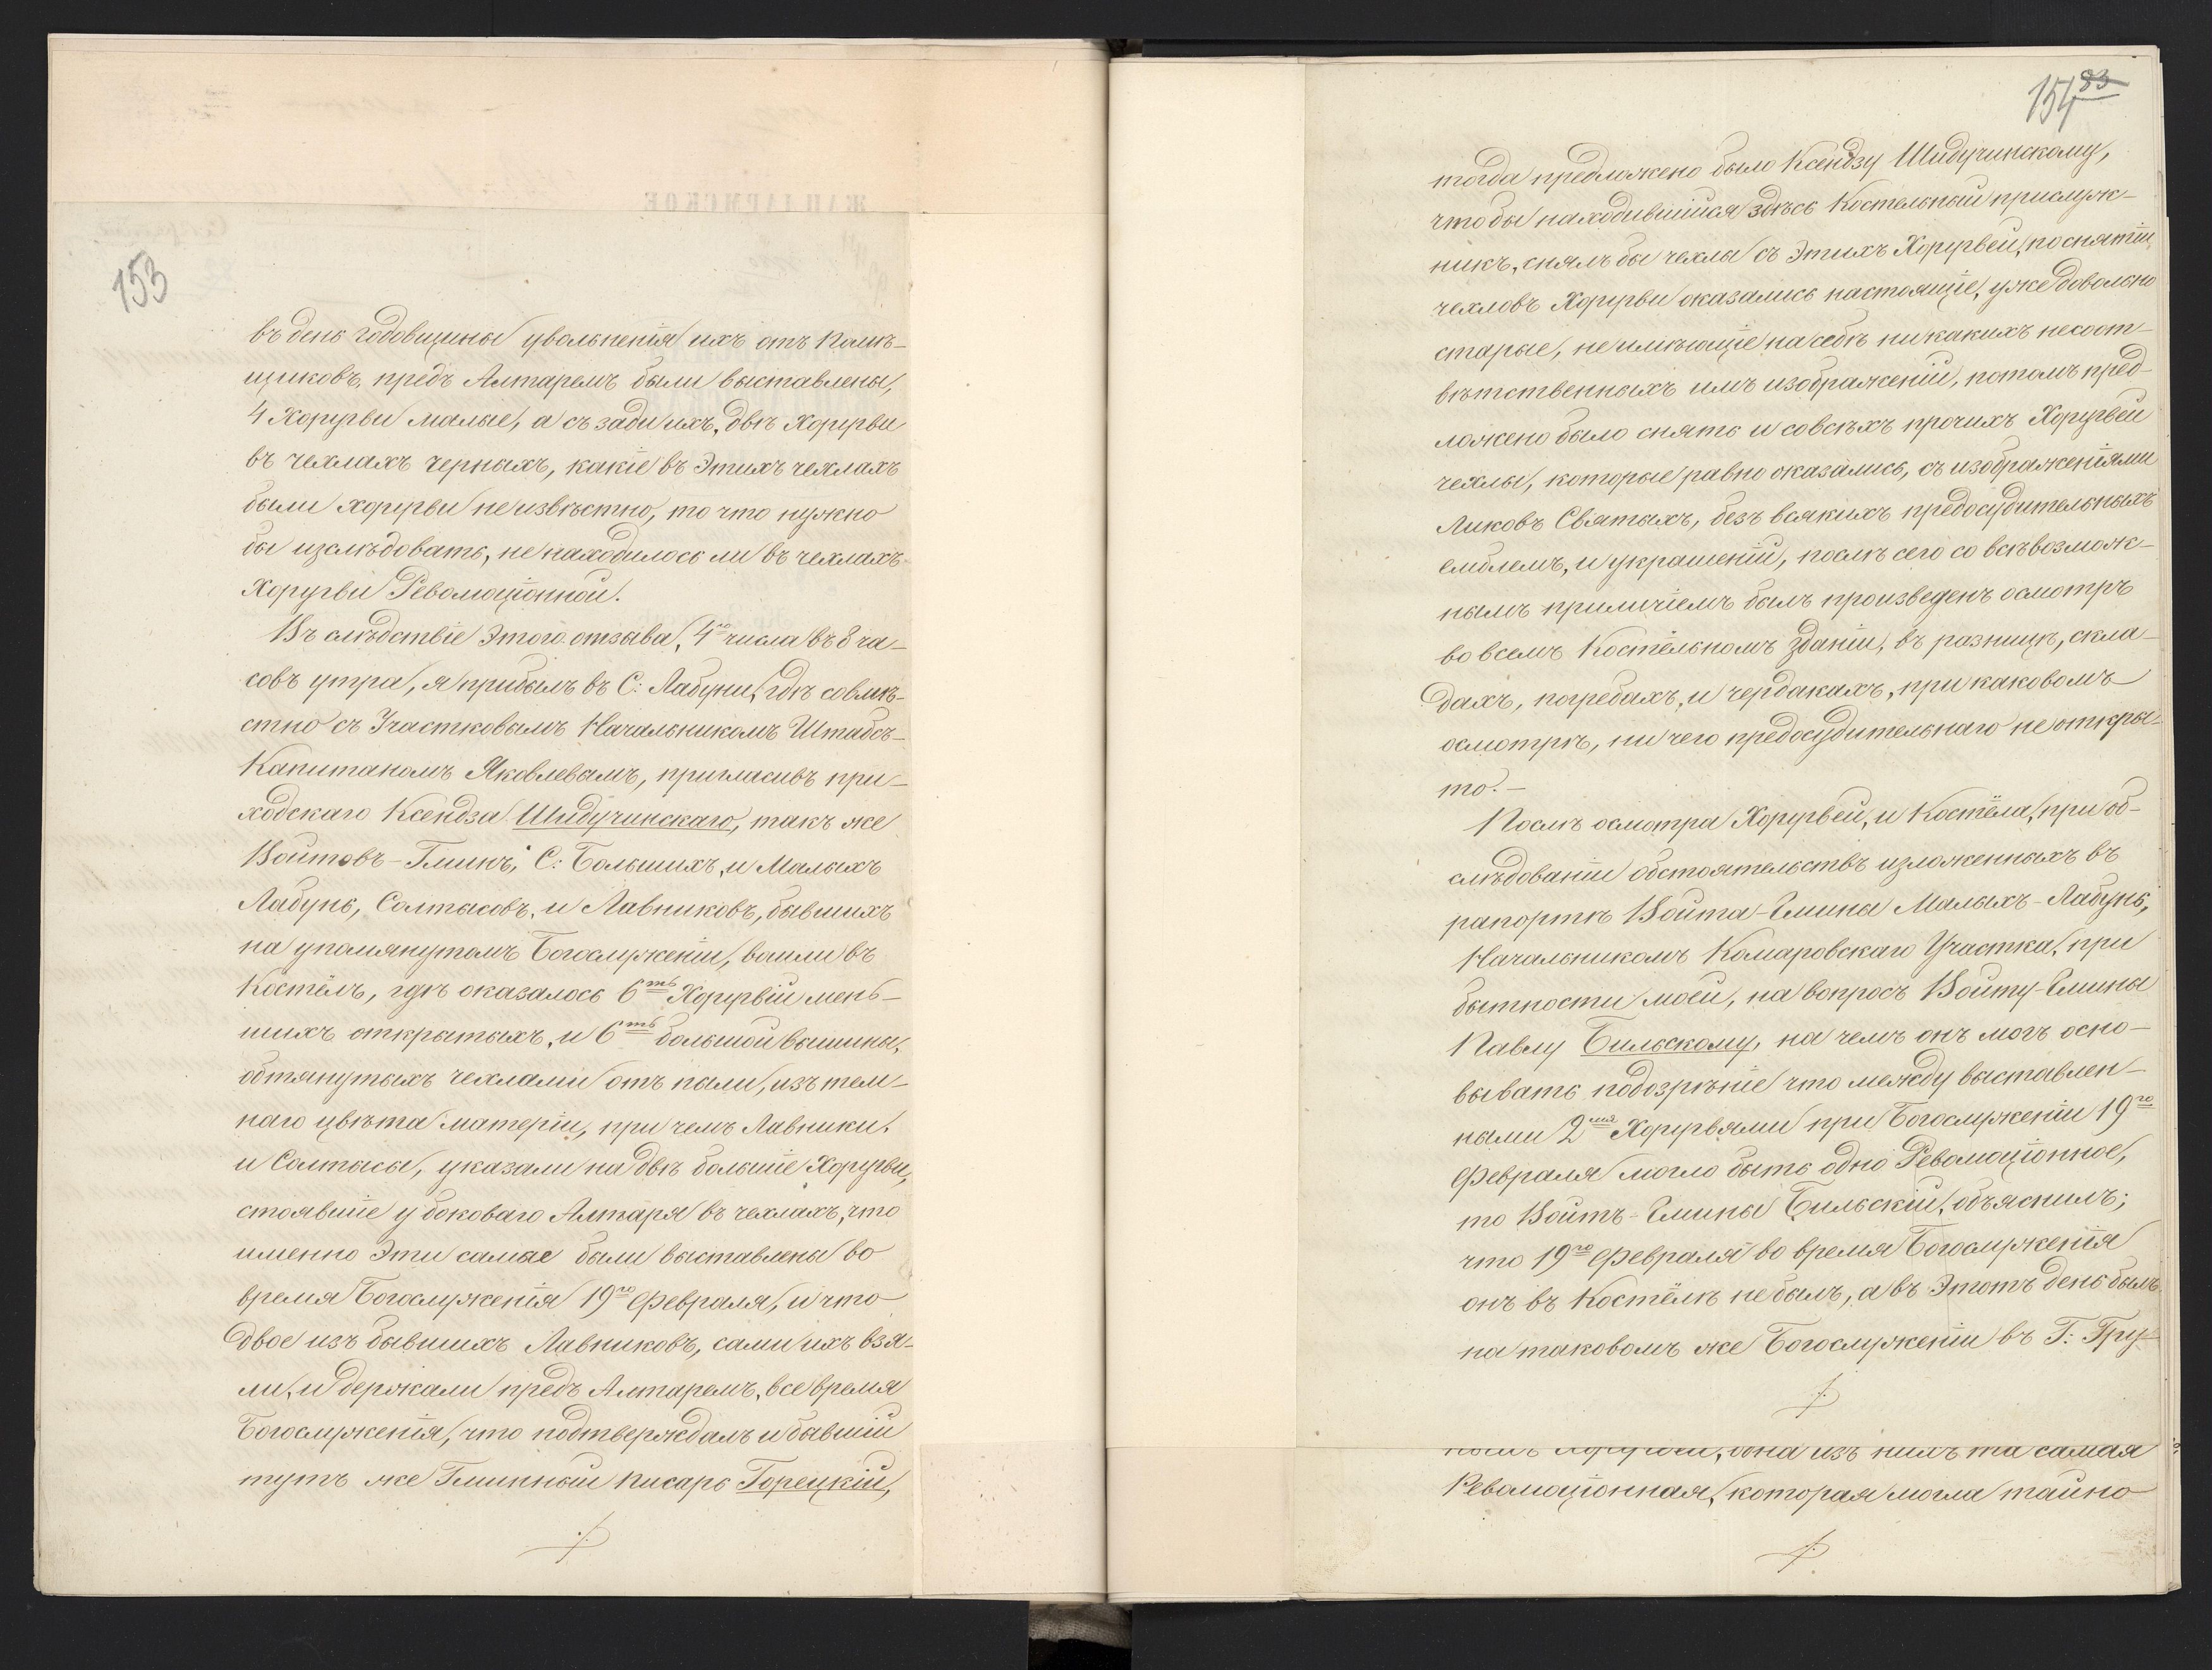 153
въ день годовщины увольненія ихъ отъ Помѣ-
щиковъ, предъ Алтаремъ были выставлены,
4 Хоругви малые, а съ зади ихъ, двѣ Хоругви
въ чехлахъ черныхъ, какіе въ Этихъ чехлахъ
были хоругви неизвѣстно, то что нужно
бы изслѣдовать, не находилось ли въ чехлахъ
Хоругви Революціонной.
Въ слѣдствіе Этого отзыва, 4го числа въ 8 ча-
совъ утра, я прибылъ въ С: Лабуни, гдѣ совмѣ-
стно съ Участковымъ Начальникомъ Штабсъ-
Капитаномъ Яковлевымъ, пригласивъ при-
ходскаго Ксендза Шидучинскаго, такъ же
Войтовъ-Гминъ, С: Большихъ, и Малыхъ
Лабунь, Солтысовъ, и Лавниковъ, бывшихъ
на упомянутомъ Богослуженіи, вошли въ
Костёлъ, гдѣ оказалось 6ть Хоругвій мень-
шихъ открытыхъ, и 6ть большой вышины,
обтянутыхъ чехлами отъ пыли, изъ тем-
наго цвѣта матеріи, при чемъ Лавники,
и Солтысы, указали на двѣ большіе Хоругви,
стоявшіе у боковаго Алтаря въ чехлахъ, что
именно Эти самые были выставлены во
время Богослуженія 19го Февраля, и что
двое изъ бывшихъ Лавниковъ, сами ихъ взя-
ли, и держали предъ Алтаремъ, все время
Богослуженія, что подтверждалъ и бывшій
тутъ же Гминный писарь Горецкій,
154 83
тогда предложено было Ксендзу Шидучинскому,
чтобы находившійся здѣсь Костельный прислуж-
никъ, снялъ бы чехлы съ Этихъ Хоругвей, по снятіи
чехловъ Хоругви оказались настоящіе, уже довольно
старые, не имѣющіе на себѣ никакихъ несоот-
вѣтственныхъ имъ изображеній, потомъ пред-
ложено было снять и со всѣхъ прочихъ Хоругвей
чехлы, которые равно оказались, съ изображеніями
Ликовъ Святыхъ, безъ всякихъ предосудительныхъ
емблемъ, и украшеній, послѣ сего со всѣвозмож-
нымъ приличіемъ былъ произведенъ осмотръ
во всемъ Костёльномъ зданіи, въ разницѣ, скла-
дахъ, погребахъ, и чердакахъ, при каковомъ
осмотрѣ, ни чего предосудительнаго не откры-
то.-
Послѣ осмотра Хоругвей, и Костёла, при об-
слѣдованіи обстоятельствъ изложенныхъ въ
рапортѣ Войта-Гмины Малыхъ-Лабунь,
Начальникомъ Комаровскаго Участка, при
бытности моей, на вопросъ Войту-Гмины
Павлу Бильскому, на чемъ онъ могъ осно-
вывать подозрѣніе что между выставлен-
ными 2мя Хоругвями при Богослуженіи 19го
Февраля могло быть одно Революціонное,
то Войтъ-Гмины Бильскій, объяснилъ;
что 19го Февраля во время Богослуженія
онъ въ Костёлѣ не былъ, а въ Этотъ день былъ
на таковомъ же Богослуженіи въ Г: Гру-
одна изъ нихъ та самая
Революціонная, которая могла тайно